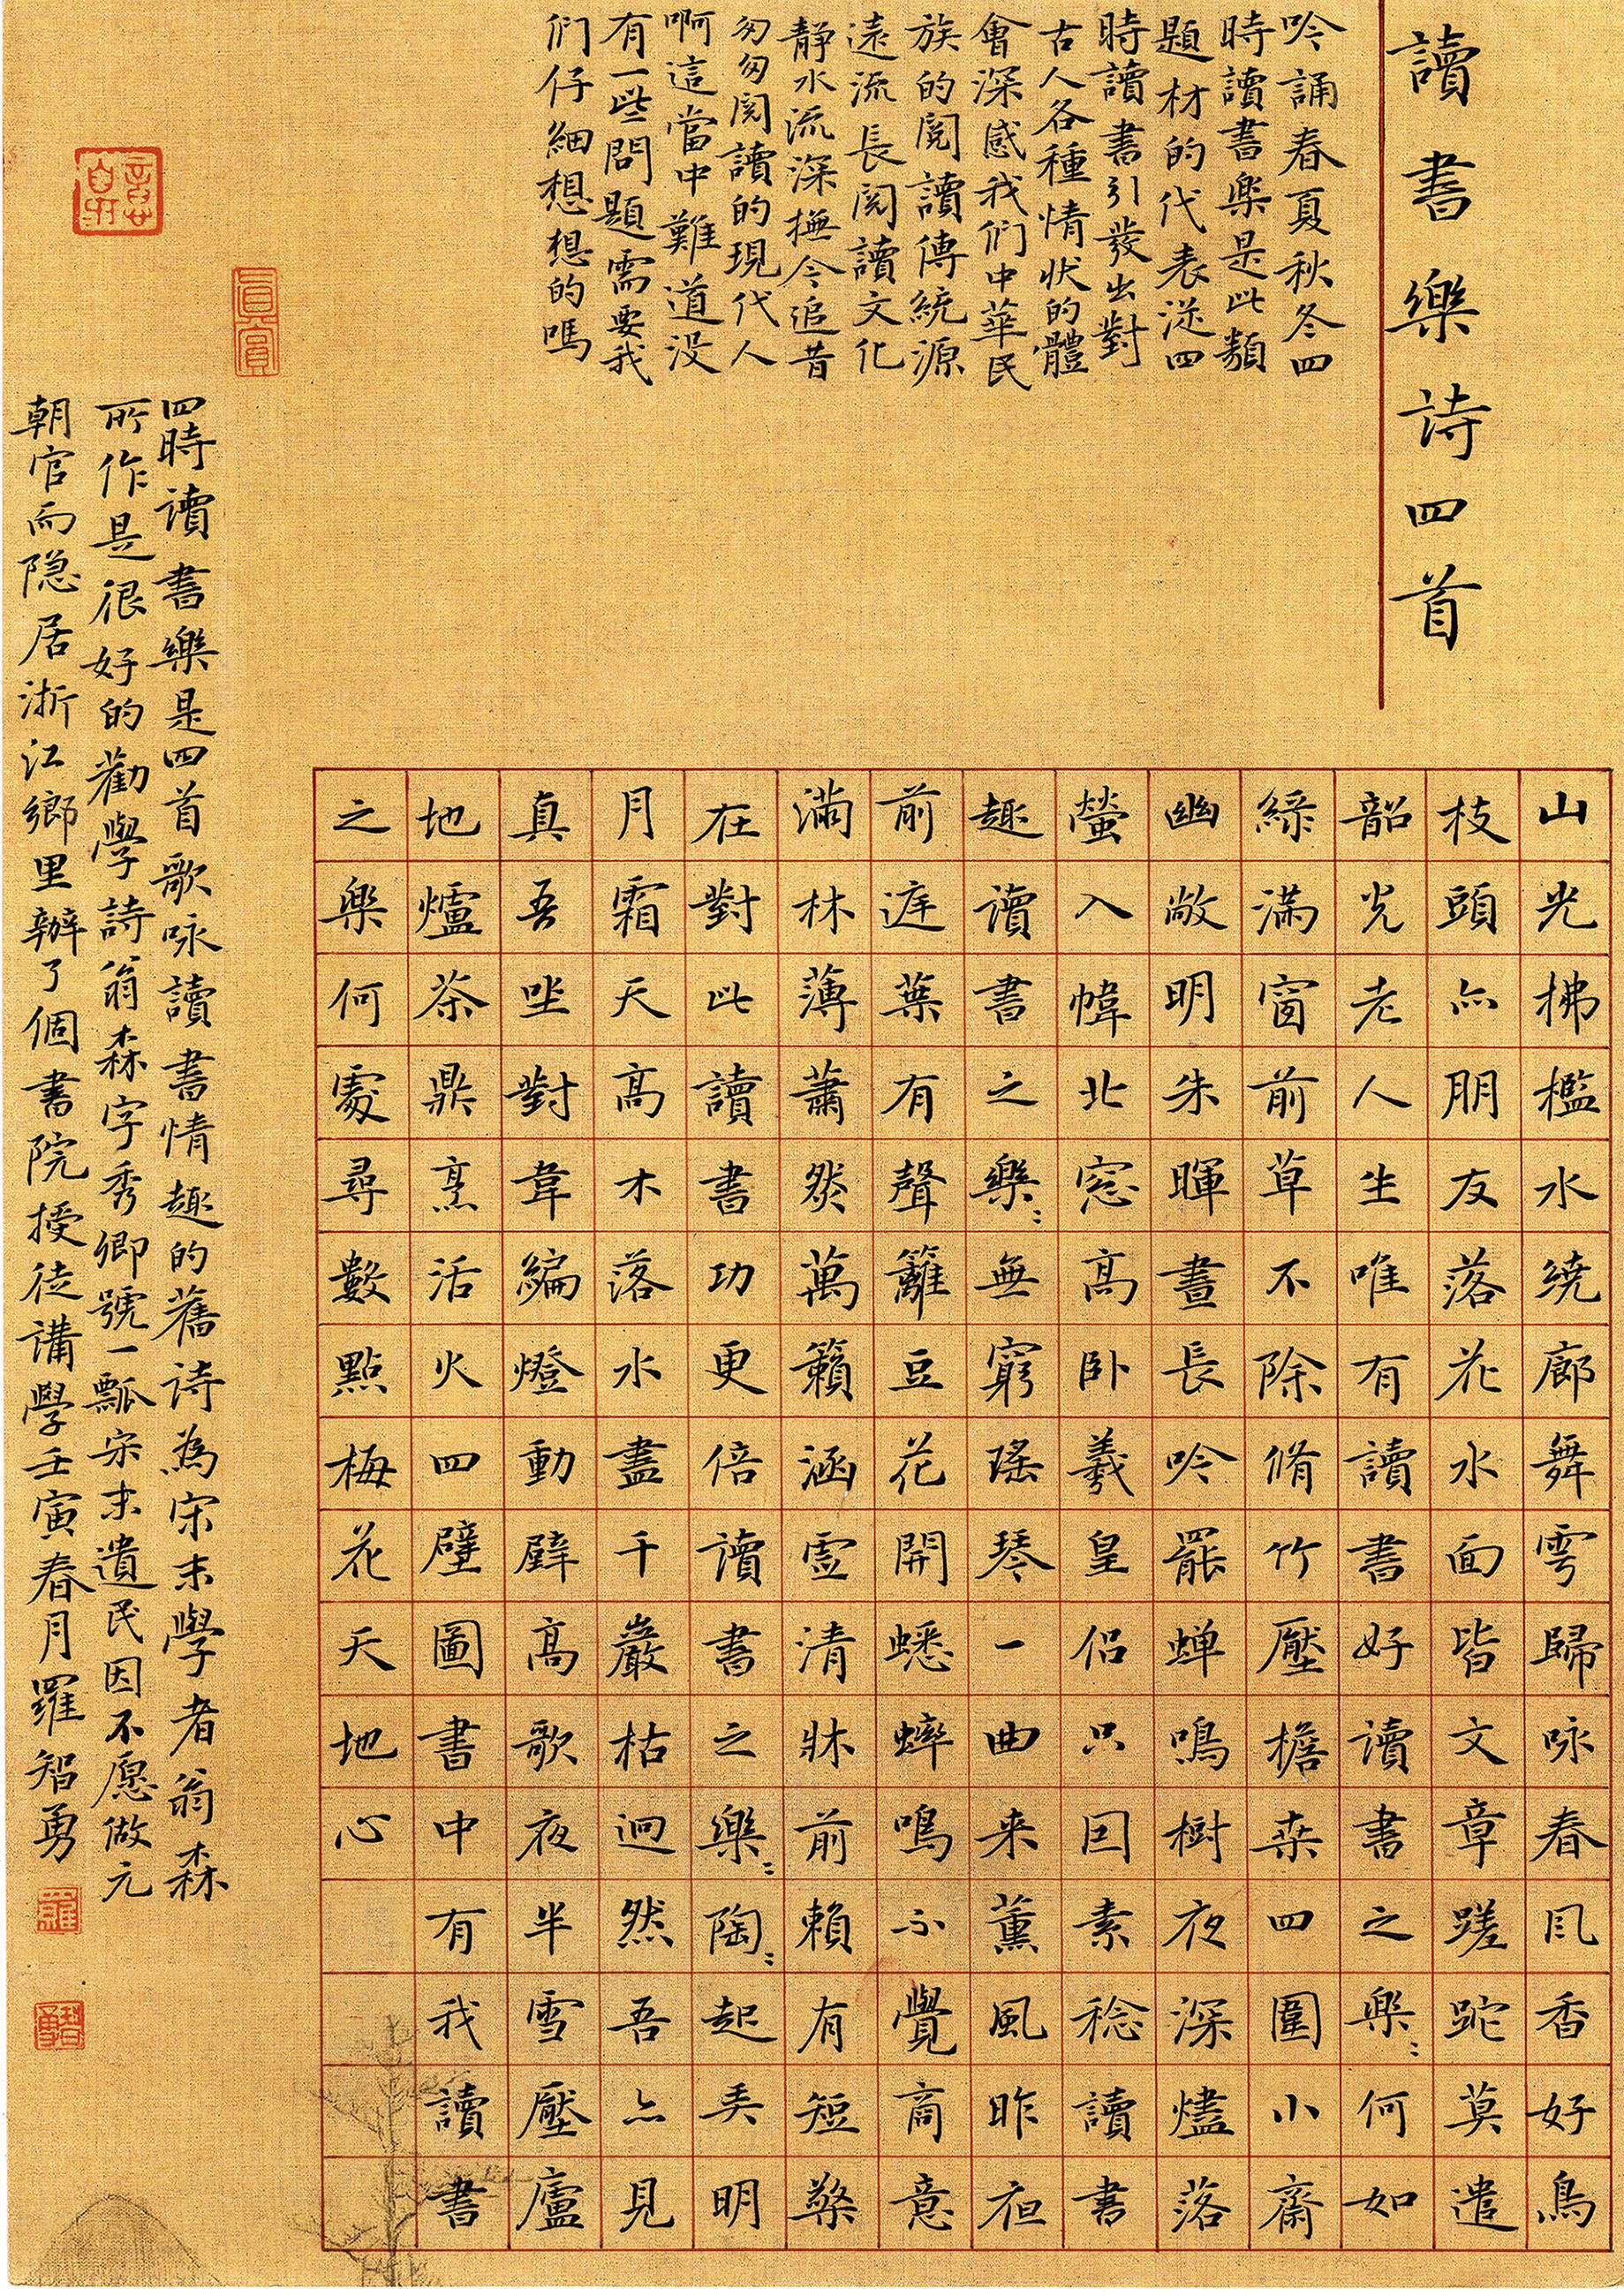 讀書樂詩四首
吟誦春夏秋冬四
時讀書樂是此類
題材的代表從四
時讀書引發出對
古人各種情狀的體
會深感我們中華民
族的閱讀傳統源
遠流長閱讀文化
靜水流深撫今追昔
匆匆閱讀的現代人
啊這當中難道没
有一些問題需要我
們仔細想想的嗎
山光拂檻水繞廊舞雩歸咏春風香好鳥
枝頭亦朋友落花水面皆文章蹉跎莫遣
韶光老人生唯有讀書好讀書之樂〻何如
綠滿窗前草不除脩竹壓檐桑四圍小齋
幽敞明朱暉晝長吟罷蟬鳴樹夜深燼落
螢入幃北窓高卧羲皇侣只因素稔讀書
趣讀書之樂〻無窮瑤琴一曲来薰風昨夜
前庭葉有聲籬豆花開蟋蟀鳴不覺商意
滿林薄蕭然萬籟涵虛清牀前賴有短檠
在對此讀書功更倍讀書之樂〻陶〻起弄明
月霜天高木落水盡千巖枯迥然吾亦見
真吾坐對韋編燈動壁高歌夜半雪壓廬
地爐茶鼎烹活火四壁圖書中有我讀書
之樂何處尋數點梅花天地心
四時讀書樂是四首歌咏讀書情趣的舊詩為宋末學者翁森
所作是很好的勸學詩翁森字秀卿號一瓢宋末遺民因不愿做元
朝官而隐居浙江鄉里辦了個書院授徒講學壬寅春月羅智勇
羅
智勇